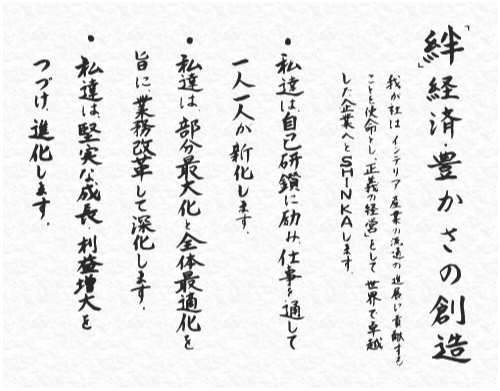 「絆」経済・豊かさの創造
我が社は インテリア 産業の流通の進展に貢献する
ことを使命とし、「正義の経営」として 世界で卓越
した企業へと SHINKAします。
・私達は、自己研鑽に励み、仕事を通して
一人一人が新化します。
・私達は、部分最大化と全体最適化を
旨に、業務改革して深化します。
・私達は、堅実な成長、利益増大を
つづけ、進化します。